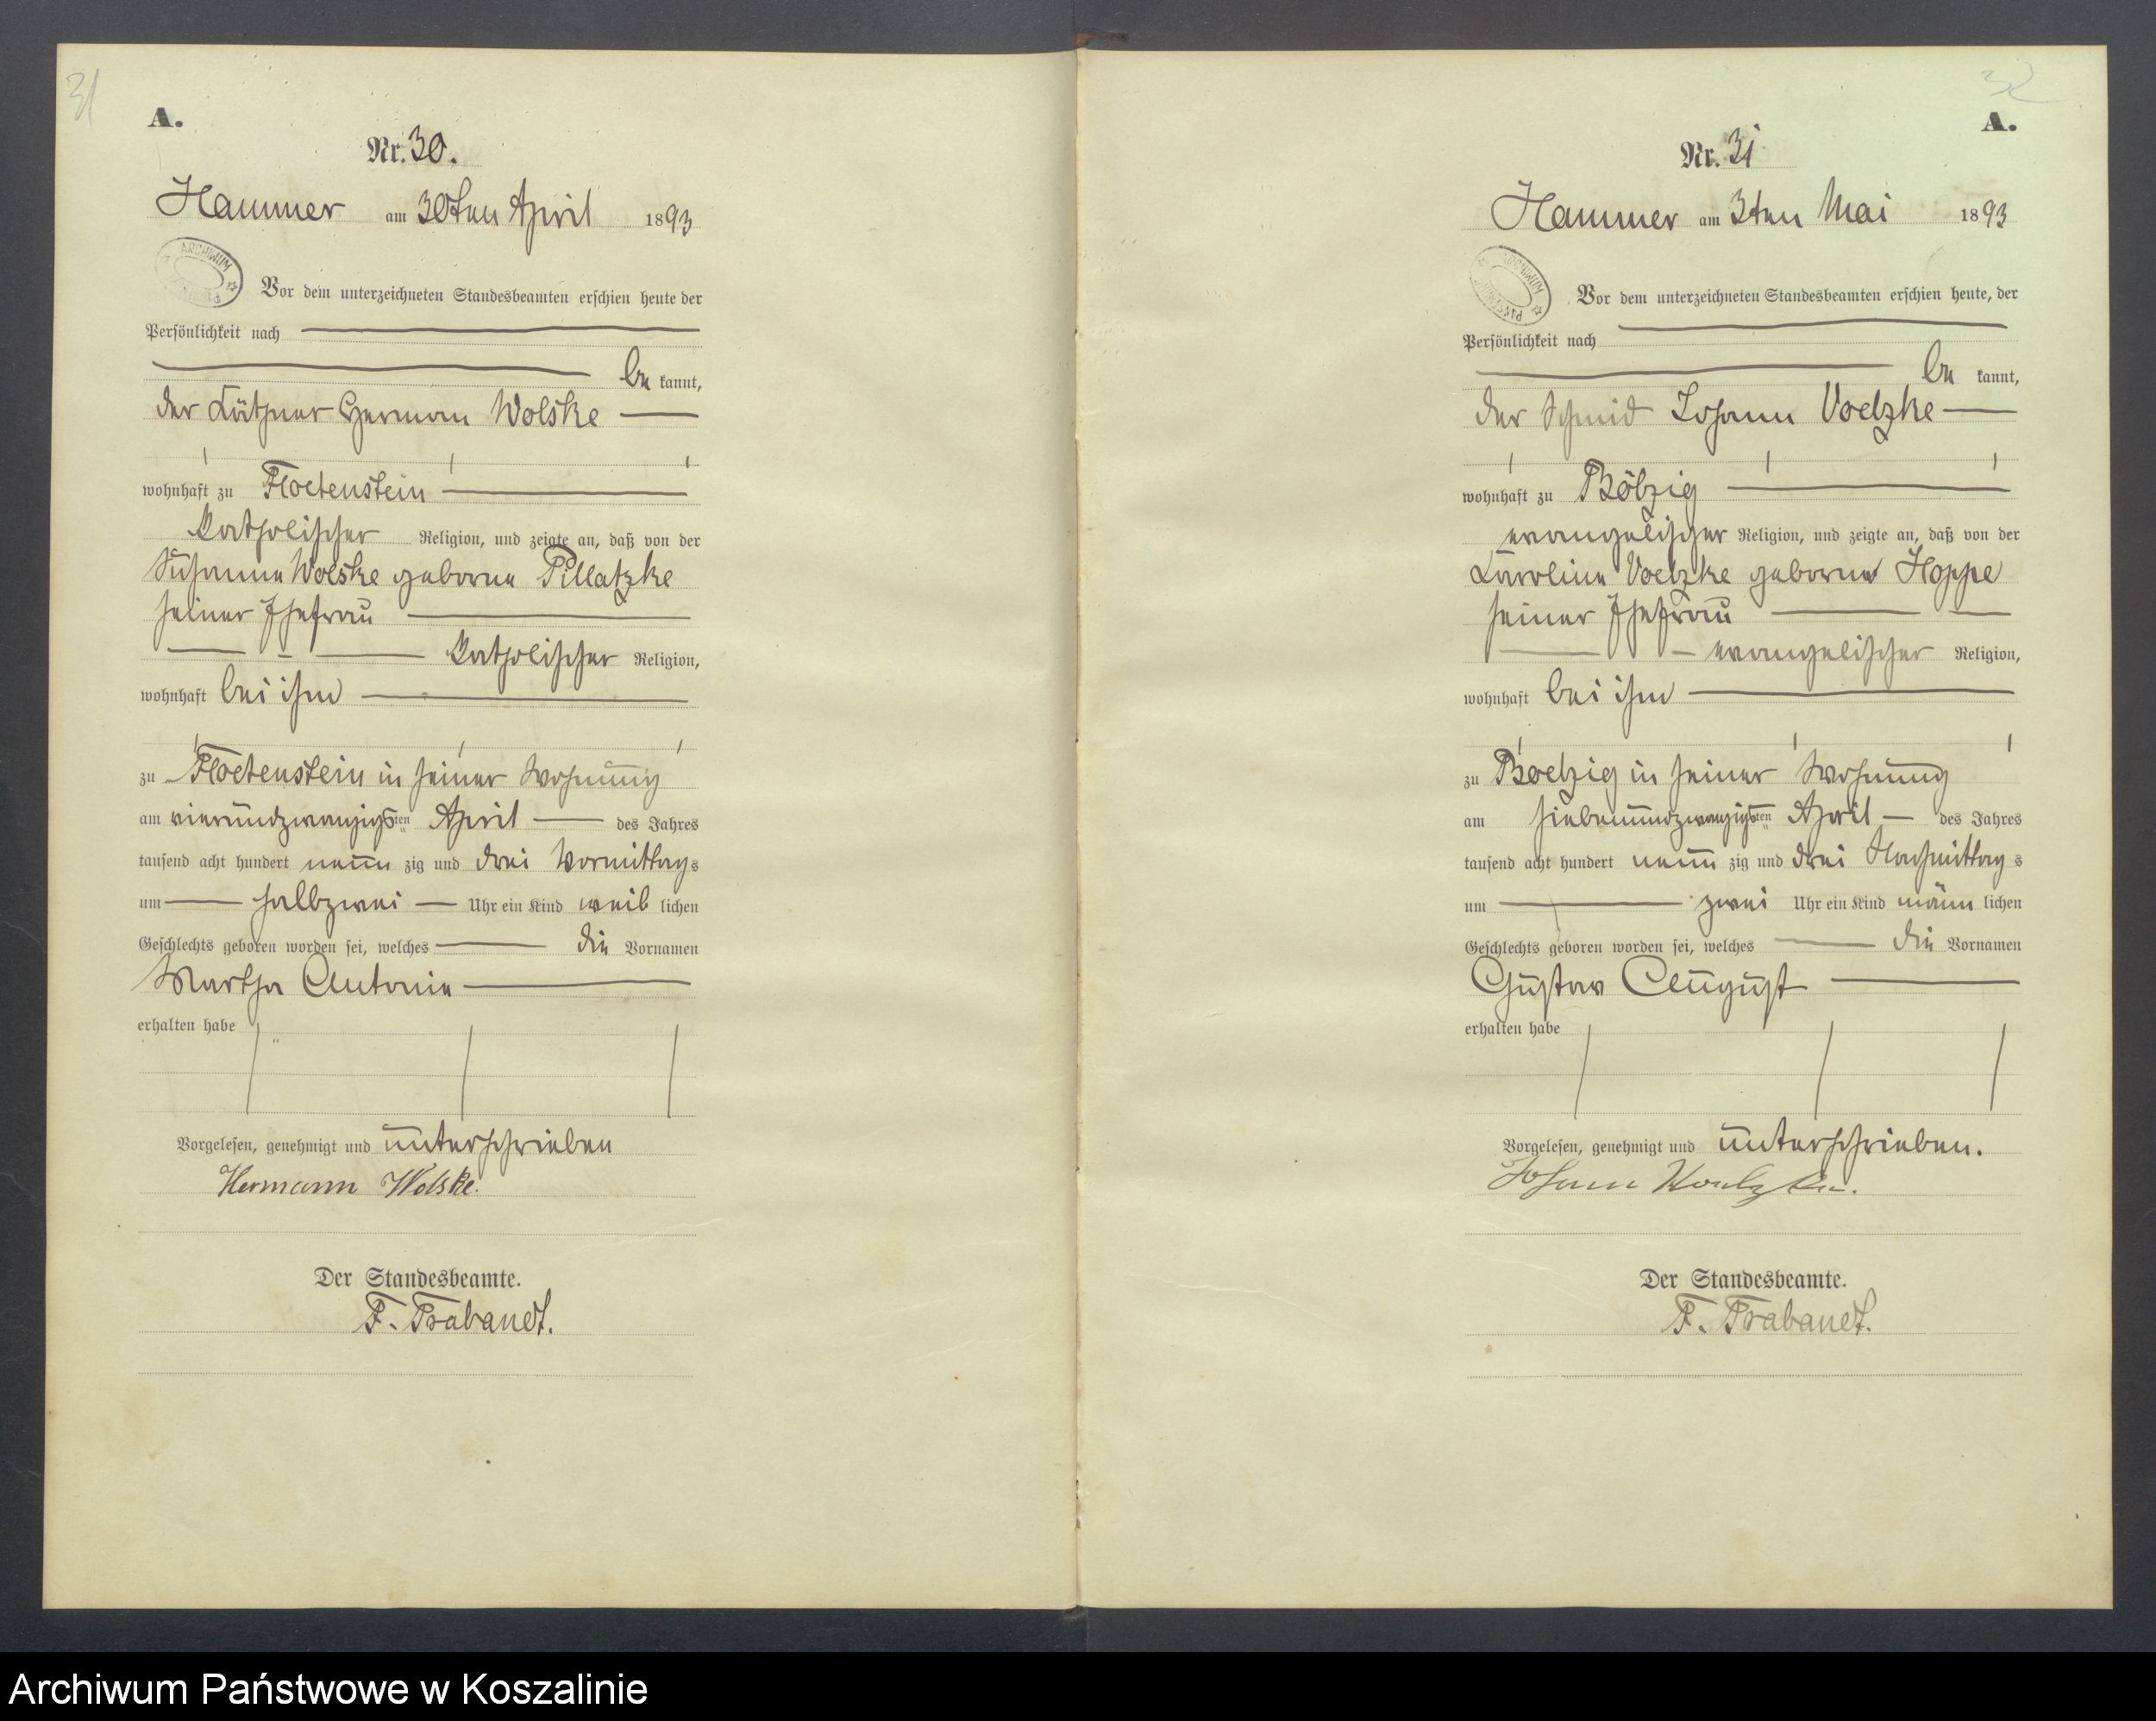 31
A.
Nr. 30.
Hammer am 30ten April 1893
ARCHIWUM
Vor dem unterzeichneten Standesbeamten erschien heute der
Persönlichkeit nach
be kannt,
der Käthner Herman Wolske
wohnhaft zu Floetenstein
katholischer Religion, und zeigte an, daß von der
Susanna Wolske geborne Pillatzke
seiner Ehefrau
katholischer Religion,
wohnhaft bei ihm
zu Floetenstein in seiner Wohnung
am vierundzwanzigsten April des Jahres
tausend acht hundert neun zig und drei Vormittags
um halbzwei Uhr ein Kind weib lichen
Geschlechts geboren worden sei, welches die Vornamen
Martha Antonie
erhalten habe
Vorgelesen, genehmigt und unterschrieben
Hermann Wolske.
Der Standesbeamte.
F. Trabandt.
32
A.
Nr. 31
Hammer am 3ten Mai 1893
ARCHIWUM
Vor dem unterzeichneten Standesbeamten erschien heute, der
Persönlichkeit nach
be kannt,
der Schmid Johann Voelzke
wohnhaft zu Bölzig
evangelischer Religion, und zeigte an, daß von der
Karoline Voelzke geborne Hoppe
seiner Ehefrau
evangelischer Religion,
wohnhaft bei ihm
zu Boelzig in seiner Wohnung
am siebenundzwanzigsten April des Jahres
tausend acht hundert neun zig und drei Nachmittags
um zwei Uhr ein Kind männ lichen
Geschlechts geboren worden sei, welches die Vornamen
Gustav August
erhalten habe
Vorgelesen, genehmigt und unterschrieben.
Johann Voelzke.
Der Standesbeamte.
F. Trabandt.
Archiwum Państwowe w Koszalinie